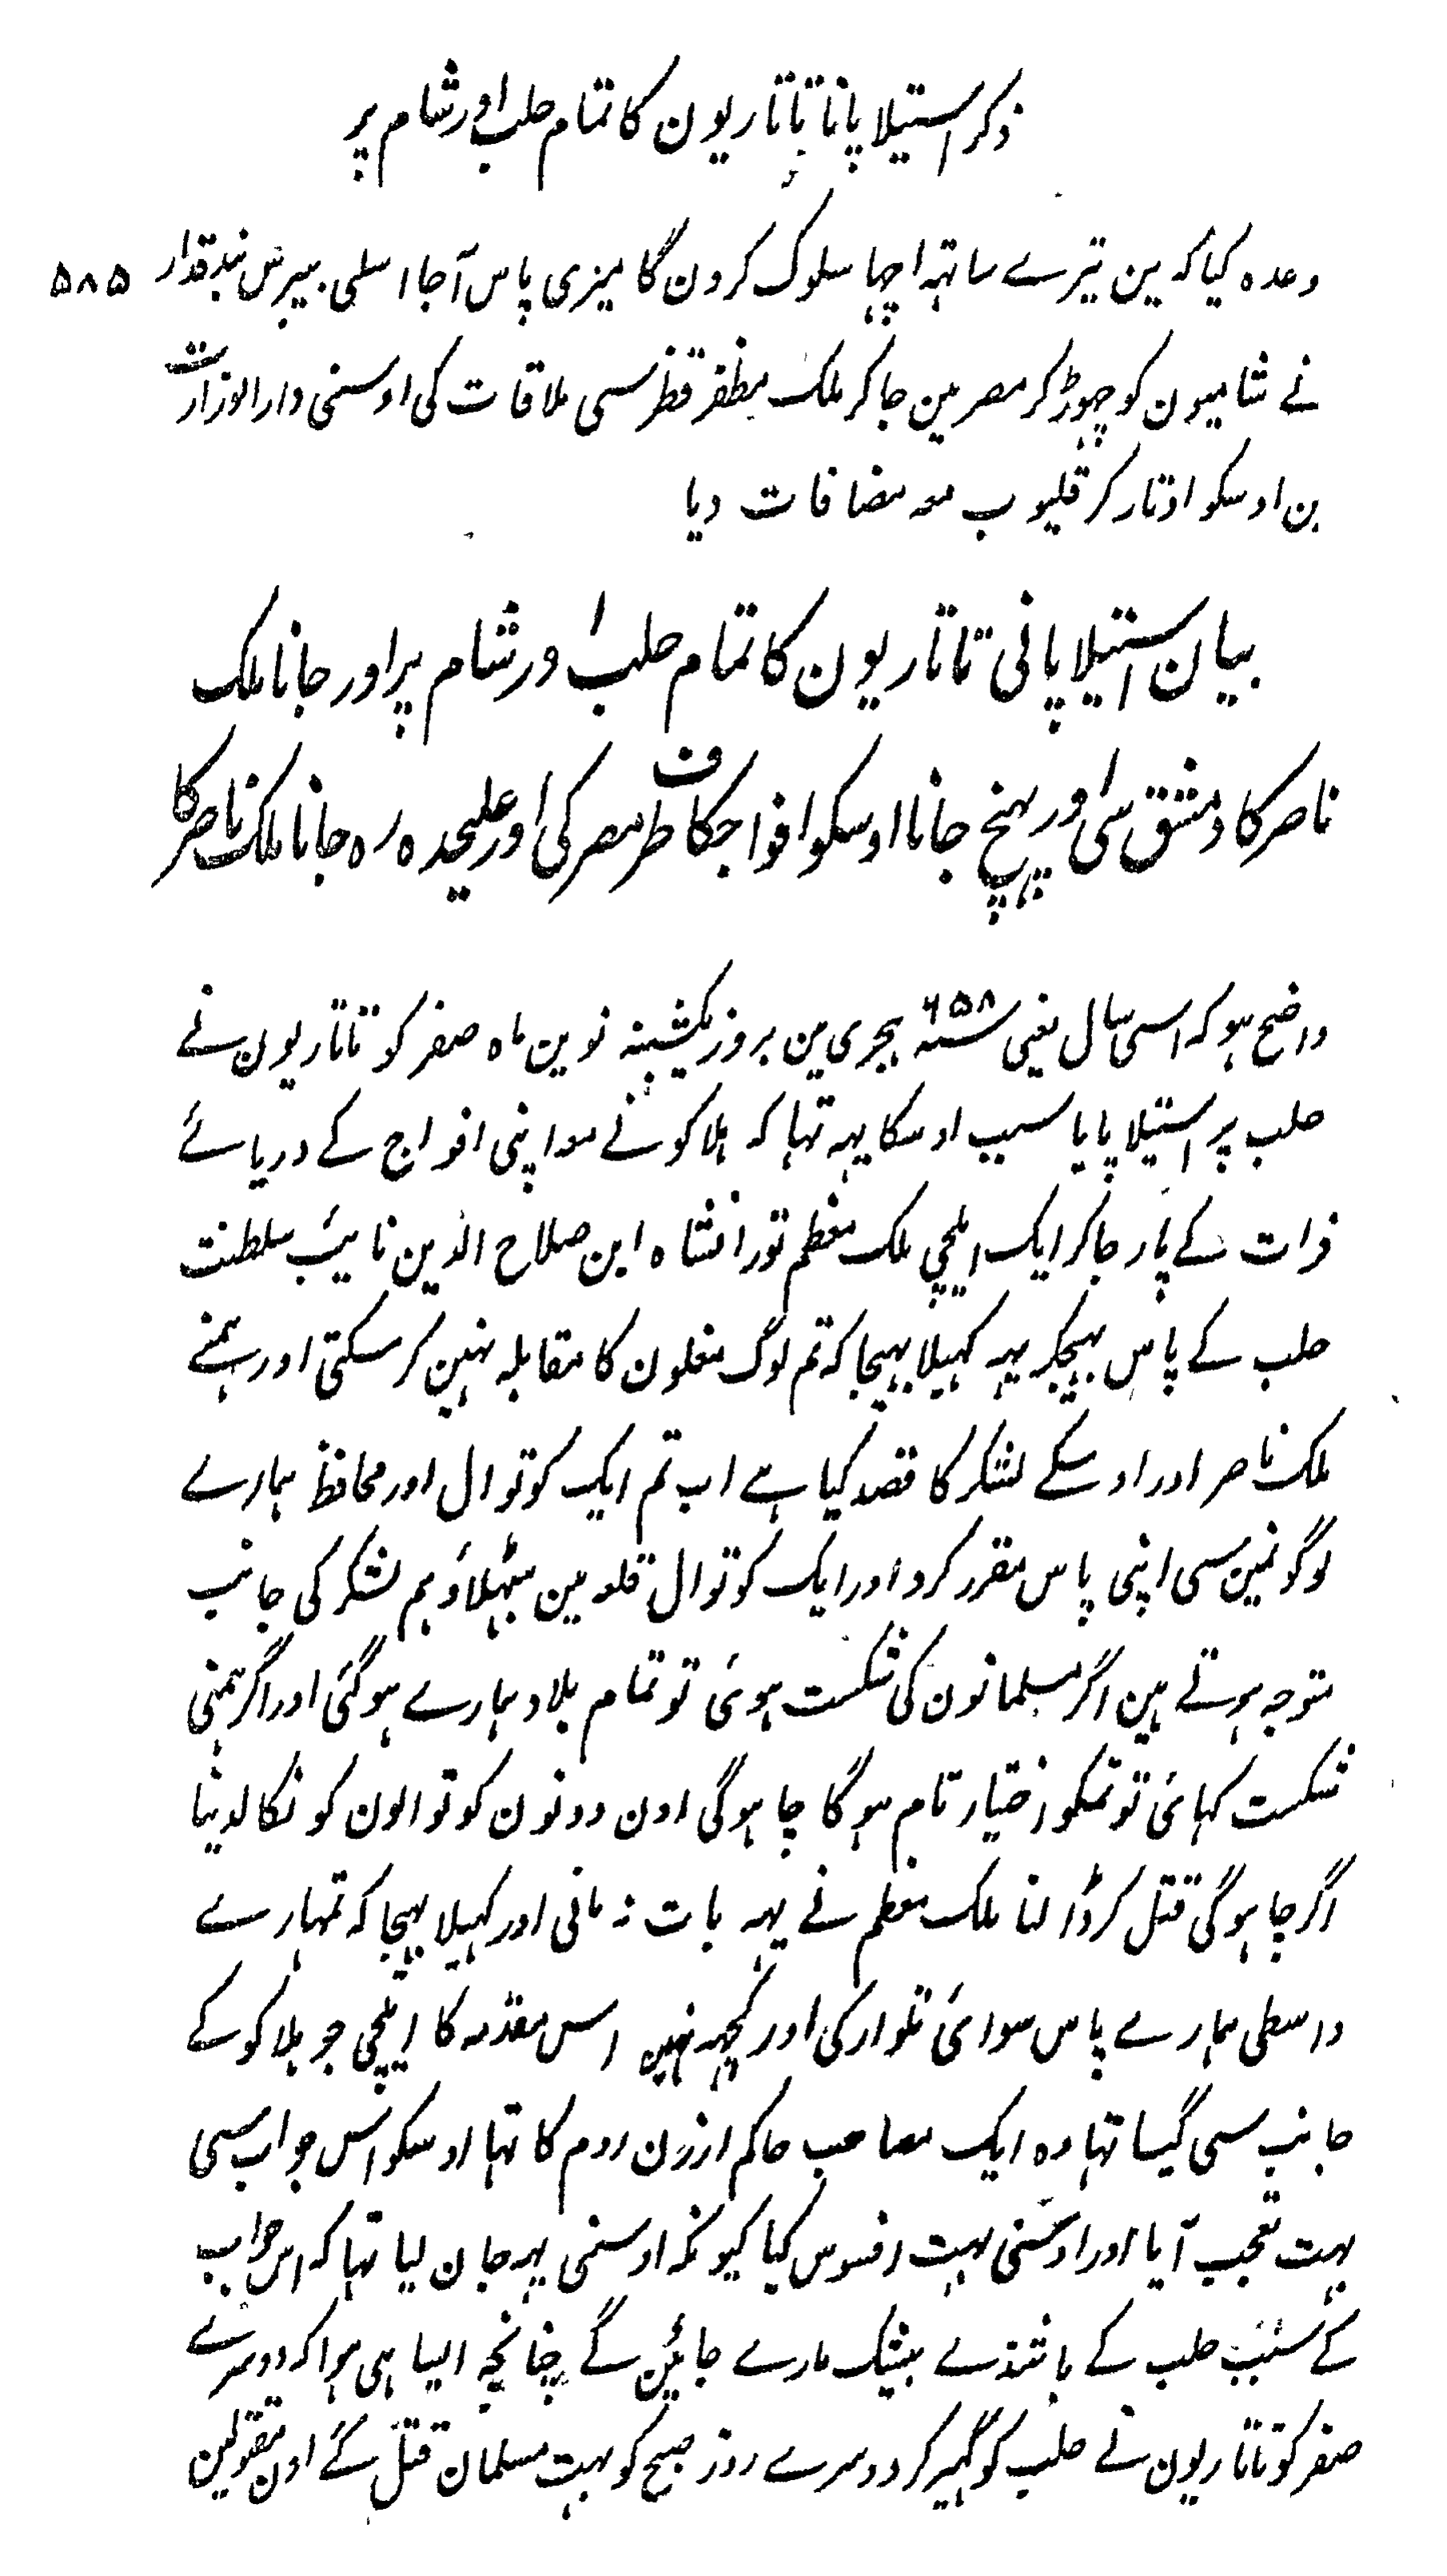 ذکر استیلا پانا تاتاریون کا تمام حلب اور شام پر
۵۸۵
وعدہ کیا کہ مین تیرے ساتہہ اچہا سلوک کرون گا میری پاس آجا اسلی بیبرس بندقدار
نے شامیون کو چہوڑ کر مصر مین جا کر ملک مظفر قطز سی ملاقات کی اوسنی دار الوزارت
مین اوسکو اوتار کر قلیوب معہ مضافات دیا
بیان استیلا پانی تاتاریون کا تمام حلب اور شام پر اور جانا ملک
ناصر کا دمشق سی اور پہنچ جانا اوسکو افواجکا طرف مصر کی اور علیحدہ رہ جانا ملک ناصر کا
واضح ہو کہ اسی سال یعنی ۶۵۸ سنہ ہجری مین بروز یکشنبہ نوین ماہ صفر کو تاتاریون نے
حلب پر استیلا پایا سبب اوسکا یہہ تہا کہ ہلاکو نے معہ اپنی افواج کے دریائے
فرات کے پار جا کر ایک ایلچی ملک معظم تورانشاہ ابن صلاح الدین نایب سلطنت
حلب کے پاس بہیجکر یہہ کہیلا بہیجا کہ تم لوگ مغلون کا مقابلہ نہین کر سکتی اور ہمنے
ملک ناصر اور اوسکے لشکر کا قصد کیا ہے اب تم ایک کوتوال اور محافظ ہمارے
لوگونمین سی اپنی پاس مقرر کرو اور ایک کوتوال قلعہ مین بٹہلاؤ ہم لشکر کی جانب
متوجہ ہوتے ہین اگر مسلمانون کی شکست ہوئی تو تمام بلاد ہمارے ہو گئی اور اگر ہمنی
شکست کہائی تو تمکو اختیار تام ہو گا چاہو گی اون دونون کوتوالون کو نکالدینا
اگر چاہو گی قتل کر ڈالنا ملک معظم نے یہہ بات نہ مانی اور کہیلا بہیجا کہ تمہارے
واسطی ہمارے پاس سوائی تلوار کی اور کچہہ نہین اس مقدمہ کا ایلچی جو ہلاکو کے
جانب سی گیا تہا وہ ایک مصاحب حاکم ارزن روم کا تہا اوسکو اس جواب سی
بہت تعجب آیا اور اوسنی بہت افسوس کیا کیونکہ اوسنی یہہ جان لیا تہا کہ اس جواب
کے سبب حلب کے باشندے بیشک مارے جائین گے چنانچہ ایسا ہی ہوا کہ دوسرے
صفر کو تاتاریون نے حلب کو گہیر کر دوسرے روز صبح کو بہت مسلمان قتل کے اون مقتولین